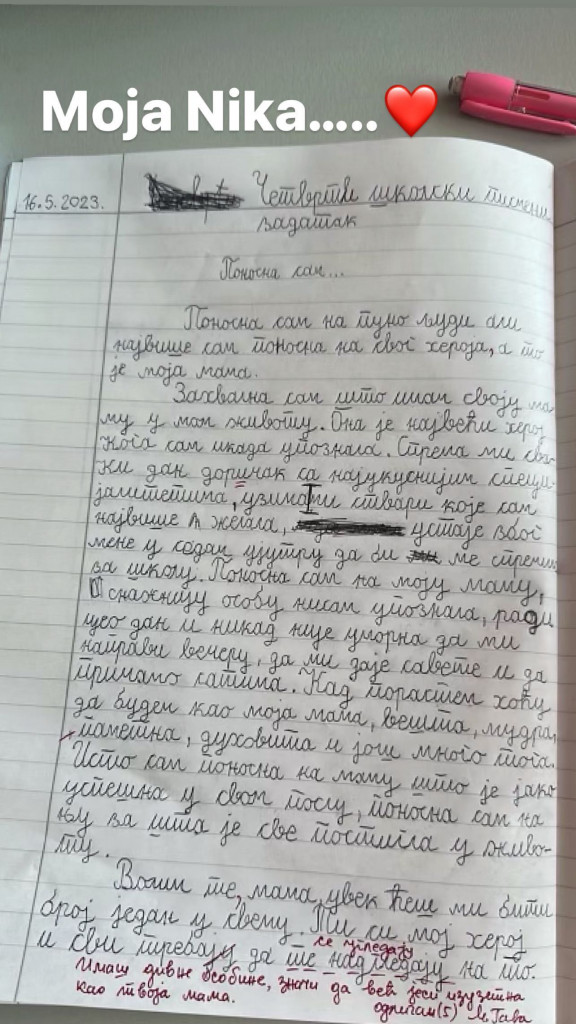 Moja Nika.....❤️
16.5.2023.
Четврти школски писмени
задатак
Поносна сам...
Поносна сам на пуно људи али
највише сам поносна на свог хероја, а то
је моја мама.
Захвална сам што имам своју ма-
му у мом животу. Она је највећи херој
кога сам икада упознала. Спрема ми сва-
ки дан доручак са најукуснијим специ-
јалитетима, узима ми ствари које сам
највише желела, устаје због
мене у седам ујутру да би ме спремила
за школу. Поносна сам на моју маму,
снажнију особу нисам упознала, ради
цео дан и никад није уморна да ми
направи вечеру, да ми даје савете и да
причамо сатима. Кад порастем хоћу
да будем као моја мама, вешта, мудра,
паметна, духовита и још много тога.
Исто сам поносна на маму што је јако
успешна у свом послу, поносна сам на
њу за шта је све постигла у живо-
ту.
Волим те, мама, увек ћеш ми бити
број један у свету. Ти си мој херој
се угледају
и сви требају да те надгледају на то.
Имаш дивне особине, значи да већ јеси изузетна
као твоја мама.
одличан (5)